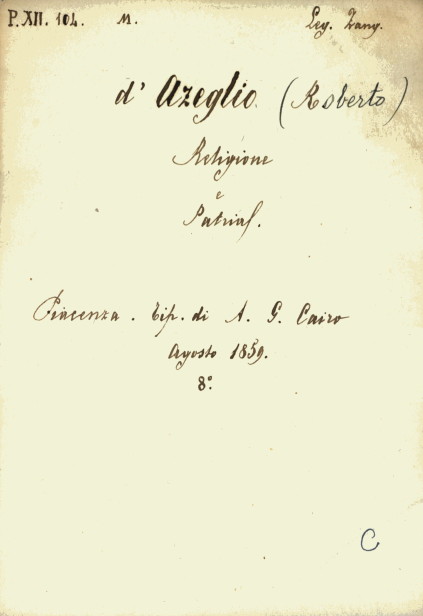 P. XII. 104. M. Leg. Zang.
d' Azeglio (Roberto)
Religione
e
Patria.
Piacenza. Tip. di A. G. Cairo
Agosto 1859.
8°.
C